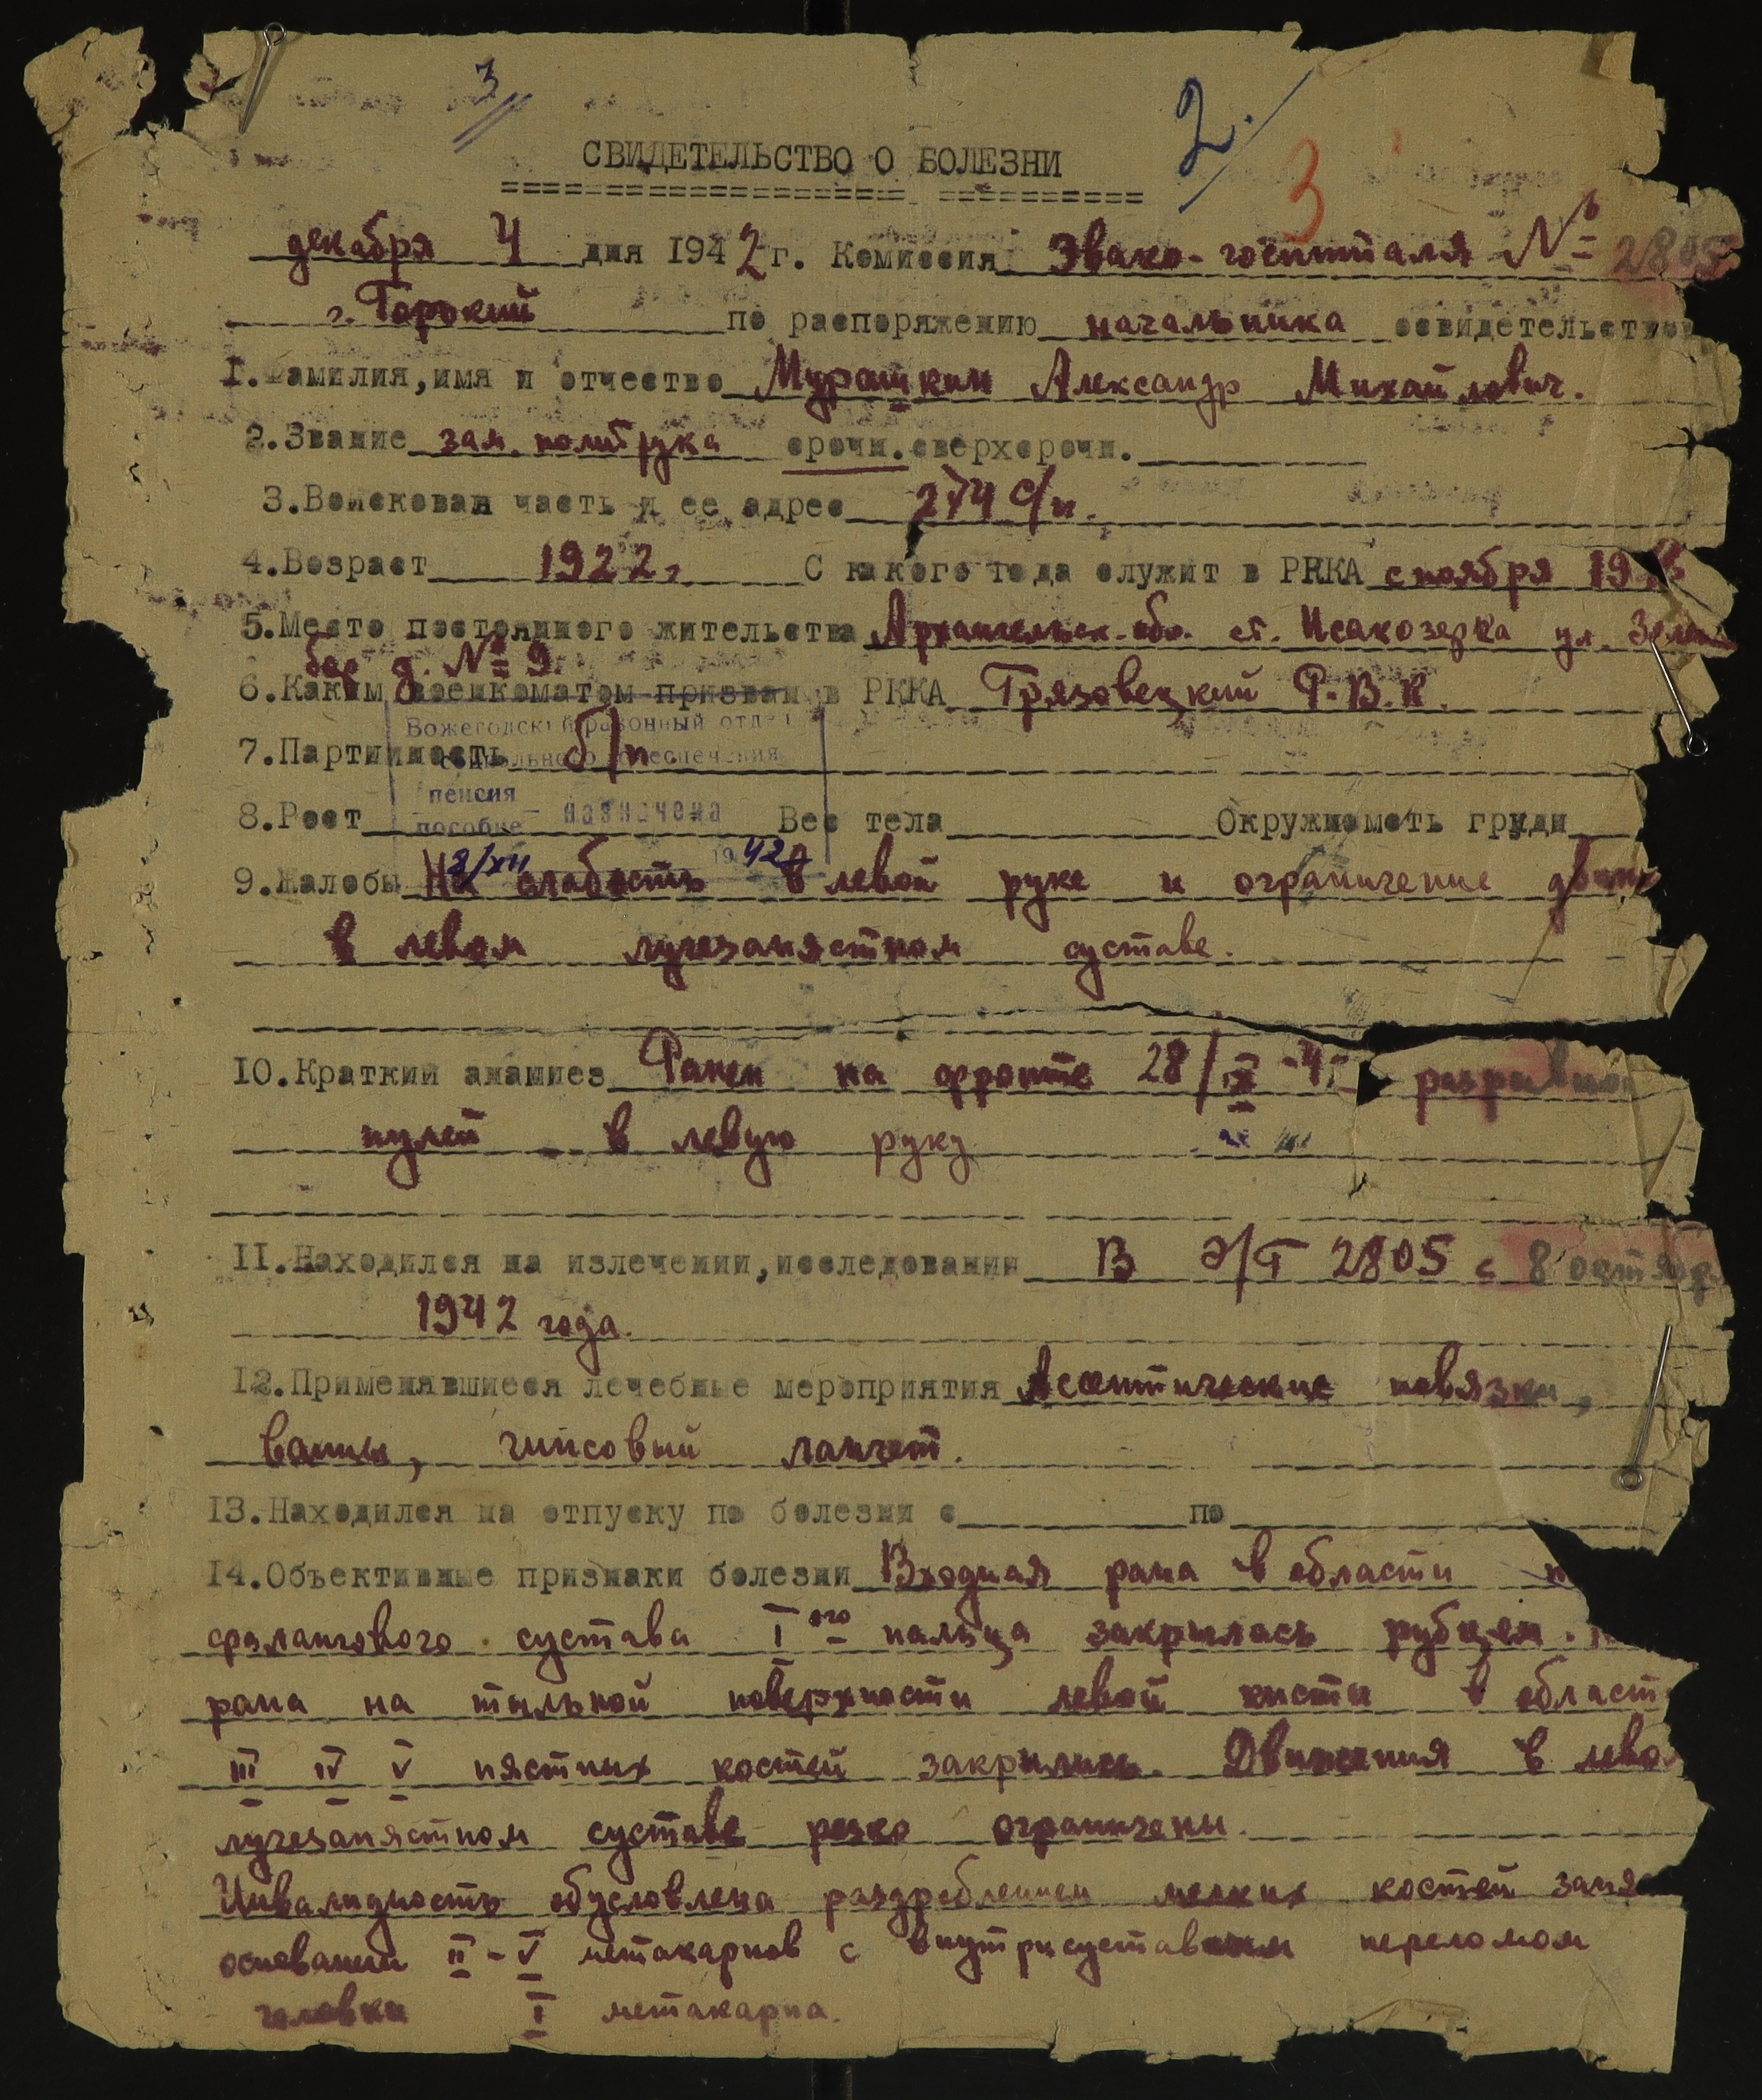 3
2.
3
СВИДЕТЕЛЬСТВО О БОЛЕЗНИ
декабря 4 дня 1942 г. Комиссия Эвако-госпиталя № 2805
г. Горький по распоряжению начальника освидетельствов
1. Фамилия, имя и отчество Мурашкин Александр Михайлович.
2. Звание зам. политрука срочн. сверхсрочн.
3. Войсковая часть и ее адрес 274 с/п.
4. Возраст 1922 г. С какого года служит в РККА с ноября 19
5. Место постоянного жительства Архангельск. обл. ст. Исакозерка ул.
д. № 9.
6. Каким военкоматом призван в РККА Грязовецкий Р.В.К.
Вожегодский районный отдел
7. Партийность б/п
социального обеспечения
пенсия
назначена
пособие
8. Рост Вес тела Окружность груди
8/XII 1942
9. Жалобы На слабость в левой руке и ограничение движе
в левом лучезапястном суставе.
10. Краткий анамнез Ранен на фронте 28/IX-4 разрывной
пулей в левую руку
11. Находился на излечении, исследовании В Э/Г 2805 с 8 октябр
1942 года.
12. Применявшиеся лечебные мероприятия Асептические повязки,
ванны, гипсовый лангет.
13. Находился на отпуску по болезни с по
14. Объективные признаки болезни Входная рана в области
фалангового сустава I ого пальца закрылась рубцем.
рана на тыльной поверхности левой кисти в област
III IV V пястных костей закрылись. Движения в лево
лучезапястном суставе резко ограничены.
Инвалидность обусловлена раздроблением мелких костей запя
оснований II - V метакарпов с внутрисуставным переломом
головки I метакарпа.